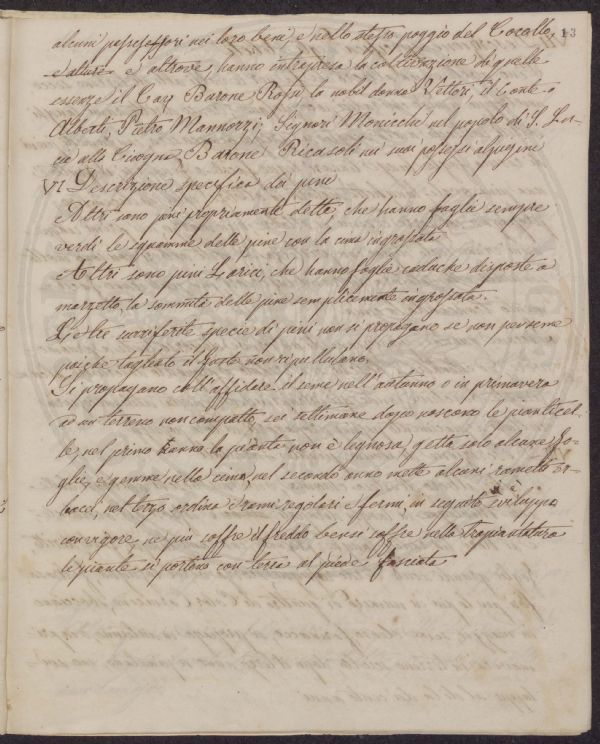 13
alcuni possessori nei loro beni, e nello stesso poggio del Cocollo,
e altrove, hanno intrapresa la coltivazione di quelle
essenze il Cav Barone Rossi, la nobil donna Vettori, il Conte
Alberti, Pietro Mannozzi, Signori Monicchi nel popolo di S. Lu-
cia alla Cicogna, Barone Ricasoli nei suoi possessi
VI Descrizione specifica dei pini
Altri sono pini propriamente detti, che hanno foglie sempre
verdi le squamme delle pine con la cima ingrossata
Altri sono pini Larici, che hanno foglie caduche disposte a
mazzetto, la sommità delle pine semplicemente ingrossata.
Le tre surriferite specie di pini non si propagano se non per seme
poiche tagliato il fusto non ripullulano.
Si propagano coll'affidare il seme nell'autunno o in primavera
ad un terreno non compatto, sei settimane dopo nascono le pianticel-
le, nel primo anno la pianta non è legnosa, getta solo alcune fo-
glie, e gemme nella cima, nel secondo anno mette alcuni rametti er-
bacei, nel terzo ordina i rami regolari e fermi, in seguito sviluppa
con vigore, ne piu soffre il freddo bensi soffre nella trapiantatura
le piante si portino con terra al piede fasciata